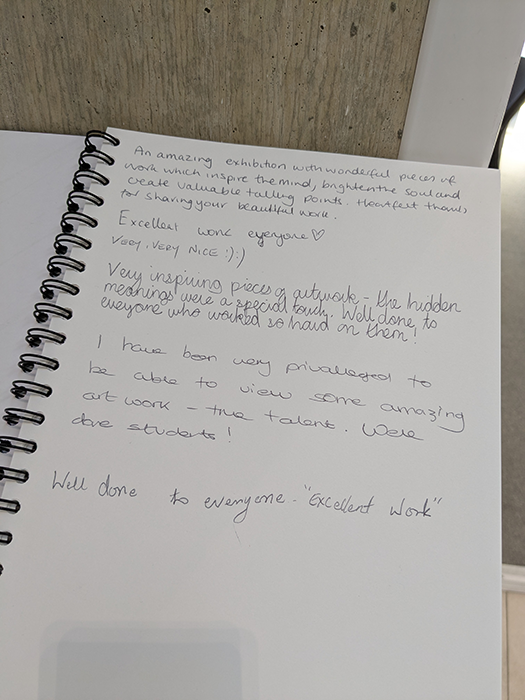 An amazing exhibition with wonderful pieces of
work which inspire the mind, brighten the soul and
create valuable talking points. Heartfelt thanks
for sharing your beautiful work.
Excellent work everyone ♡
VERY, VERY NICE :) :)
Very inspiring pieces of artwork - the hidden
meanings were a special touch. Well done to
everyone who worked so hard on them!
I have been very privalleged to
be able to view some amazing
art work - true talent. Well
done students!
Well done to everyone - "Excellent Work"